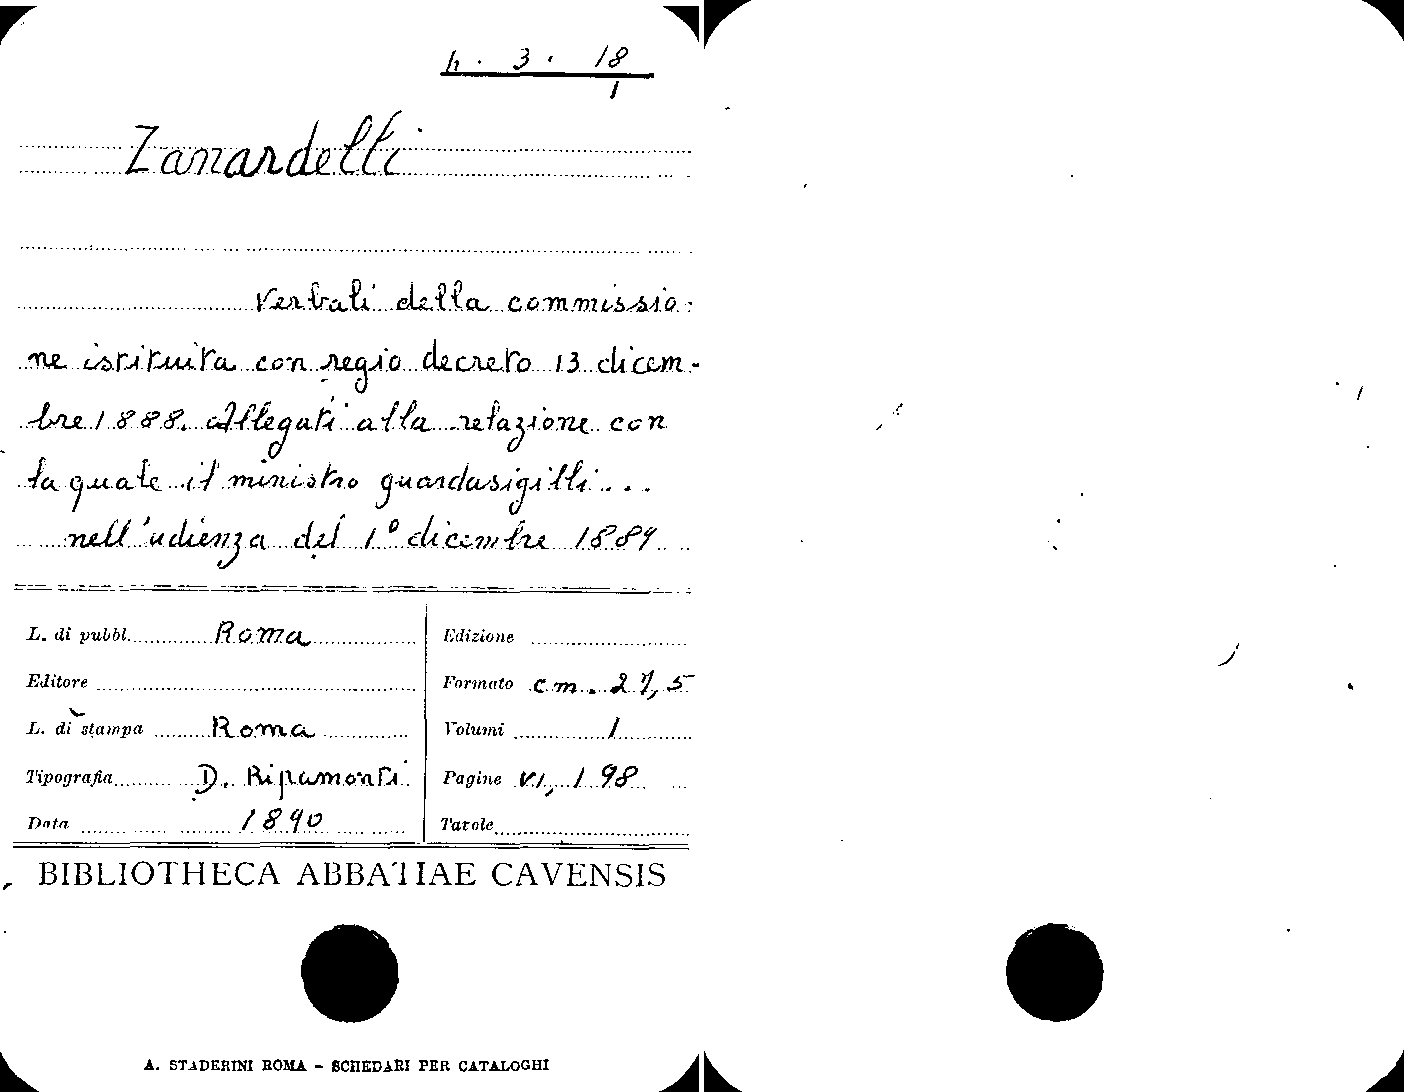 h. 3. 18
1
Zanardelli
Verbali della commissio-
ne istituita con regio decreto 13 dicem-
bre 1888. Allegati alla relazione con
la quale il ministro guardasigilli...
nell'udienza del 1° dicembre 1889
L. di pubbl. Roma
Edizione
Editore
Formato cm. 27,5
L. di stampa Roma
Volumi 1
Tipografia D. Ripamonti
Pagine VI, 198
Data 1890
Tavole
BIBLIOTHECA ABBATIAE CAVENSIS
A. STADERINI ROMA - SCHEDARI PER CATALOGHI